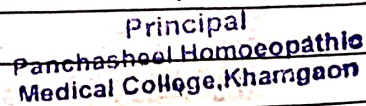 Principal
Panchasheel Homoeopathic
Medical College,Khamgaon